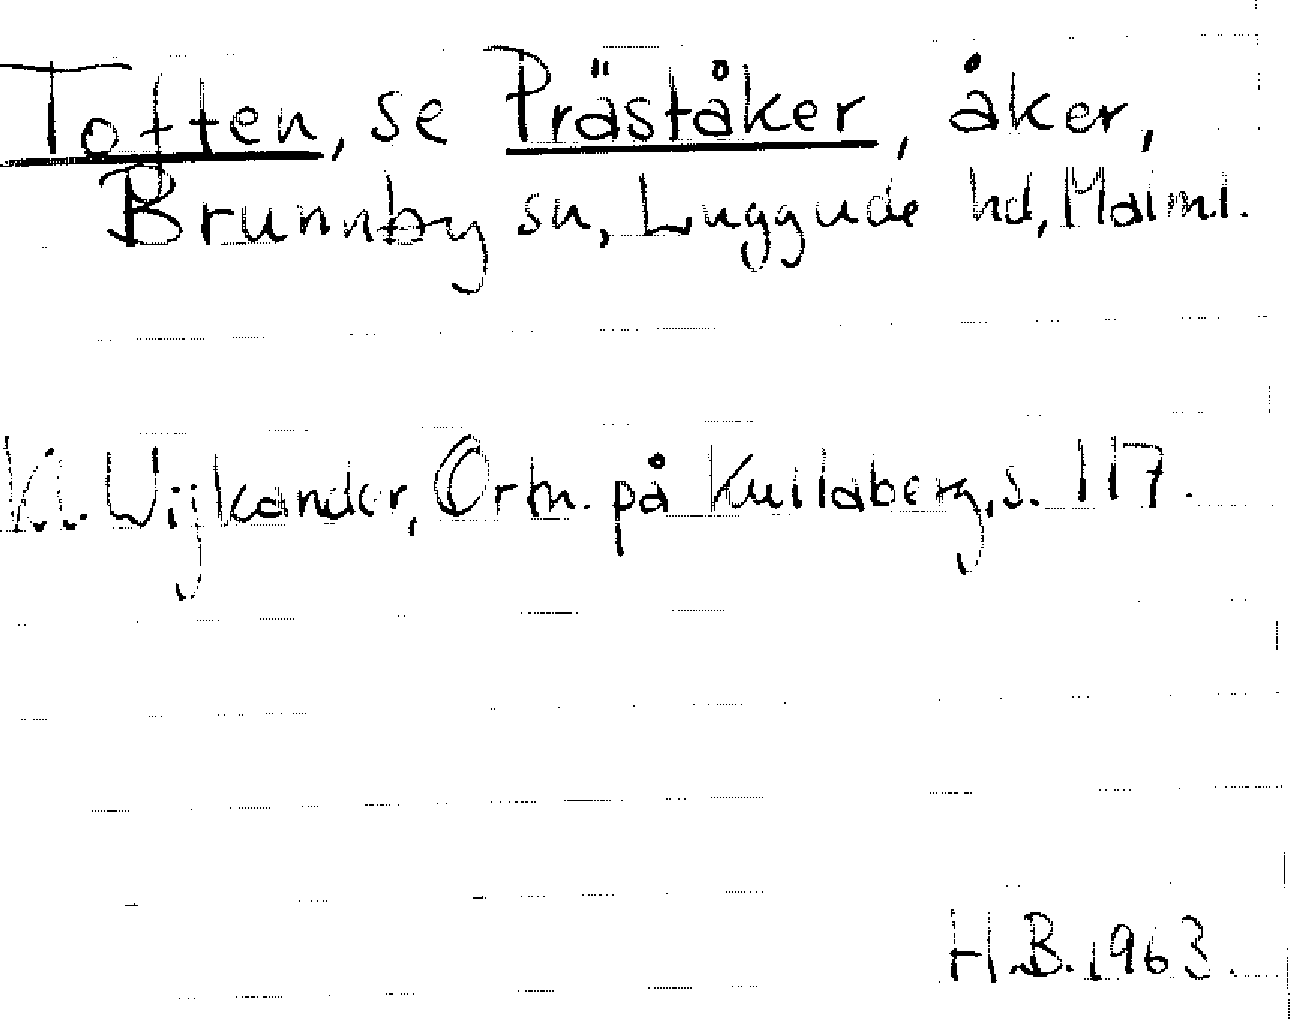 Toften, se Präståker, åker,
Brunnby sn, Luggude hd, Malml.
Wijkander, Ortn. på Kullaberg, s. 117.
H.B. 1963.